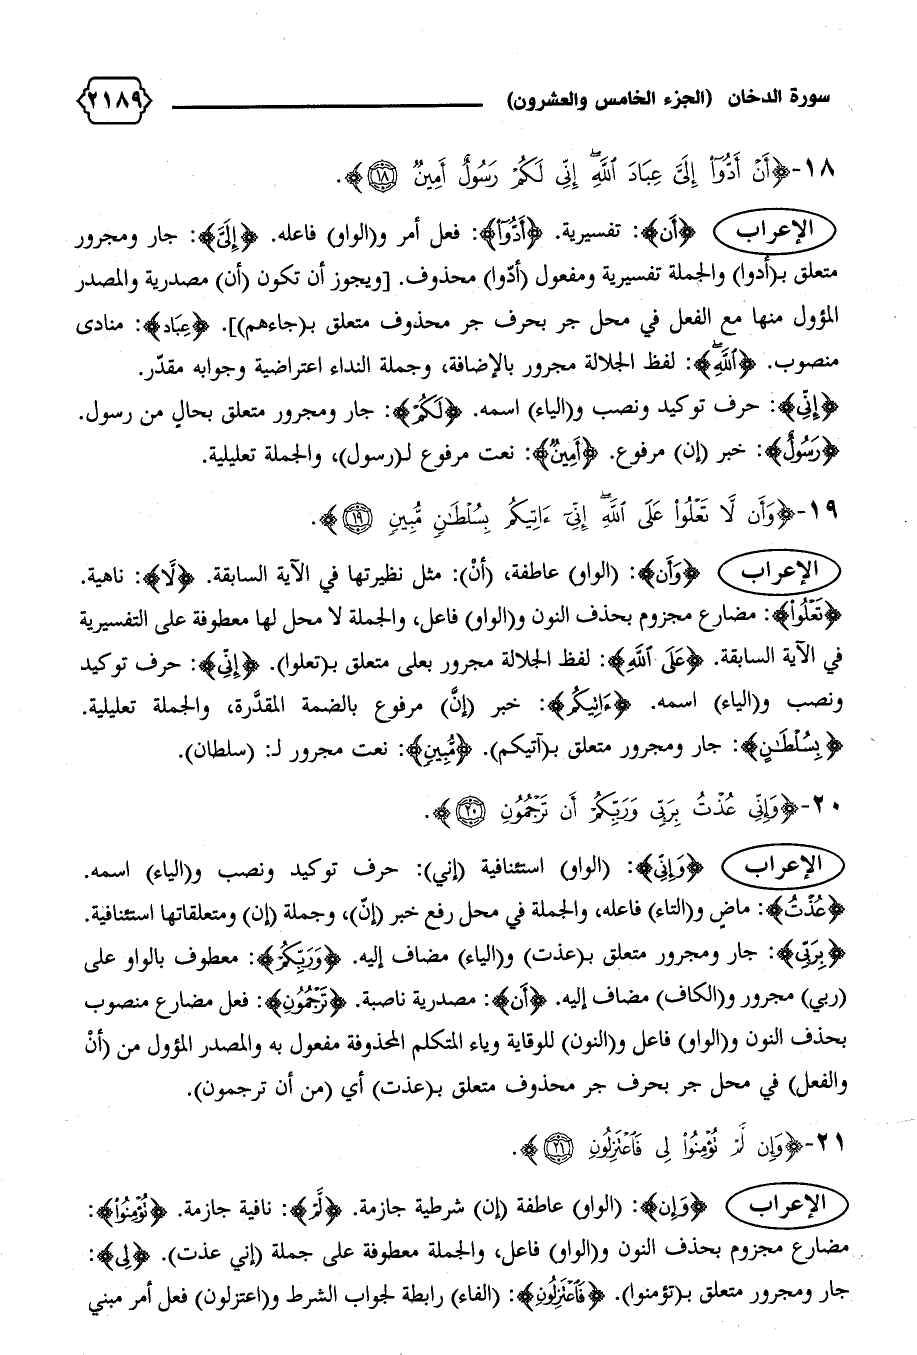 سورة الدخان (الجزء الخامس والعشرون) ٢١٨٩
١٨- ﴿أَنْ أَدُّوٓا۟ إِلَىَّ عِبَادَ ٱللَّهِ ۖ إِنِّى لَكُمْ رَسُولٌ أَمِينٌ ١٨﴾.
الإعراب ﴿أَن﴾: تفسيرية. ﴿أَدُّوٓا۟﴾: فعل أمر و(الواو) فاعله. ﴿إِلَىَّ﴾: جار ومجرور
متعلق بـ(أدوا) والجملة تفسيرية ومفعول (أدّوا) محذوف. [ويجوز أن تكون (أن) مصدرية والمصدر
المؤول منها مع الفعل في محل جر بحرف جر محذوف متعلق بـ(جاءهم)]. ﴿عِبَادَ﴾: منادى
منصوب. ﴿ٱللَّهِ ۖ﴾: لفظ الجلالة مجرور بالإضافة، وجملة النداء اعتراضية وجوابه مقدّر.
﴿إِنِّى﴾: حرف توكيد ونصب و(الياء) اسمه. ﴿لَكُمْ﴾: جار ومجرور متعلق بحالٍ من رسول.
﴿رَسُولٌ﴾: خبر (إن) مرفوع. ﴿أَمِينٌ﴾: نعت مرفوع لـ(رسول)، والجملة تعليلية.
١٩- ﴿وَأَن لَّا تَعْلُوا۟ عَلَى ٱللَّهِ ۖ إِنِّىٓ ءَاتِيكُم بِسُلْطَٰنٍ مُّبِينٍ ١٩﴾.
الإعراب ﴿وَأَن﴾: (الواو) عاطفة، (أنْ): مثل نظيرتها في الآية السابقة. ﴿لَّا﴾: ناهية.
﴿تَعْلُوا۟﴾: مضارع مجزوم بحذف النون و(الواو) فاعل، والجملة لا محل لها معطوفة على التفسيرية
في الآية السابقة. ﴿عَلَى ٱللَّهِ﴾: لفظ الجلالة مجرور بعلى متعلق بـ(تعلوا). ﴿إِنِّى﴾: حرف توكيد
ونصب و(الياء) اسمه. ﴿ءَاتِيكُم﴾: خبر (إنَّ) مرفوع بالضمة المقدَّرة، والجملة تعليلية.
﴿بِسُلْطَٰنٍ﴾: جار ومجرور متعلق بـ(آتيكم). ﴿مُّبِينٍ﴾: نعت مجرور لـ: (سلطان).
٢٠- ﴿وَإِنِّى عُذْتُ بِرَبِّى وَرَبِّكُمْ أَن تَرْجُمُونِ ٢٠﴾.
الإعراب ﴿وَإِنِّى﴾: (الواو) استئنافية (إني): حرف توكيد ونصب و(الياء) اسمه.
﴿عُذْتُ﴾: ماضٍ و(التاء) فاعله، والجملة في محل رفع خبر (إنّ)، وجملة (إن) ومتعلقاتها استئنافية.
﴿بِرَبِّى﴾: جار ومجرور متعلق بـ(عذت) و(الياء) مضاف إليه. ﴿وَرَبِّكُمْ﴾: معطوف بالواو على
(ربي) مجرور و(الكاف) مضاف إليه. ﴿أَن﴾: مصدرية ناصبة. ﴿تَرْجُمُونِ﴾: فعل مضارع منصوب
بحذف النون و(الواو) فاعل و(النون) للوقاية وياء المتكلم المحذوفة مفعول به والمصدر المؤول من (أنْ
والفعل) في محل جر بحرف جر محذوف متعلق بـ(عذت) أي (من أن ترجمون).
٢١- ﴿وَإِن لَّمْ تُؤْمِنُوا۟ لِى فَٱعْتَزِلُونِ ٢١﴾.
الإعراب ﴿وَإِن﴾: (الواو) عاطفة (إن) شرطية جازمة. ﴿لَّمْ﴾: نافية جازمة. ﴿تُؤْمِنُوا۟﴾:
مضارع مجزوم بحذف النون و(الواو) فاعل، والجملة معطوفة على جملة (إني عذت). ﴿لِى﴾:
جار ومجرور متعلق بـ(تؤمنوا). ﴿فَٱعْتَزِلُونِ﴾: (الفاء) رابطة لجواب الشرط و(اعتزلون) فعل أمر مبني